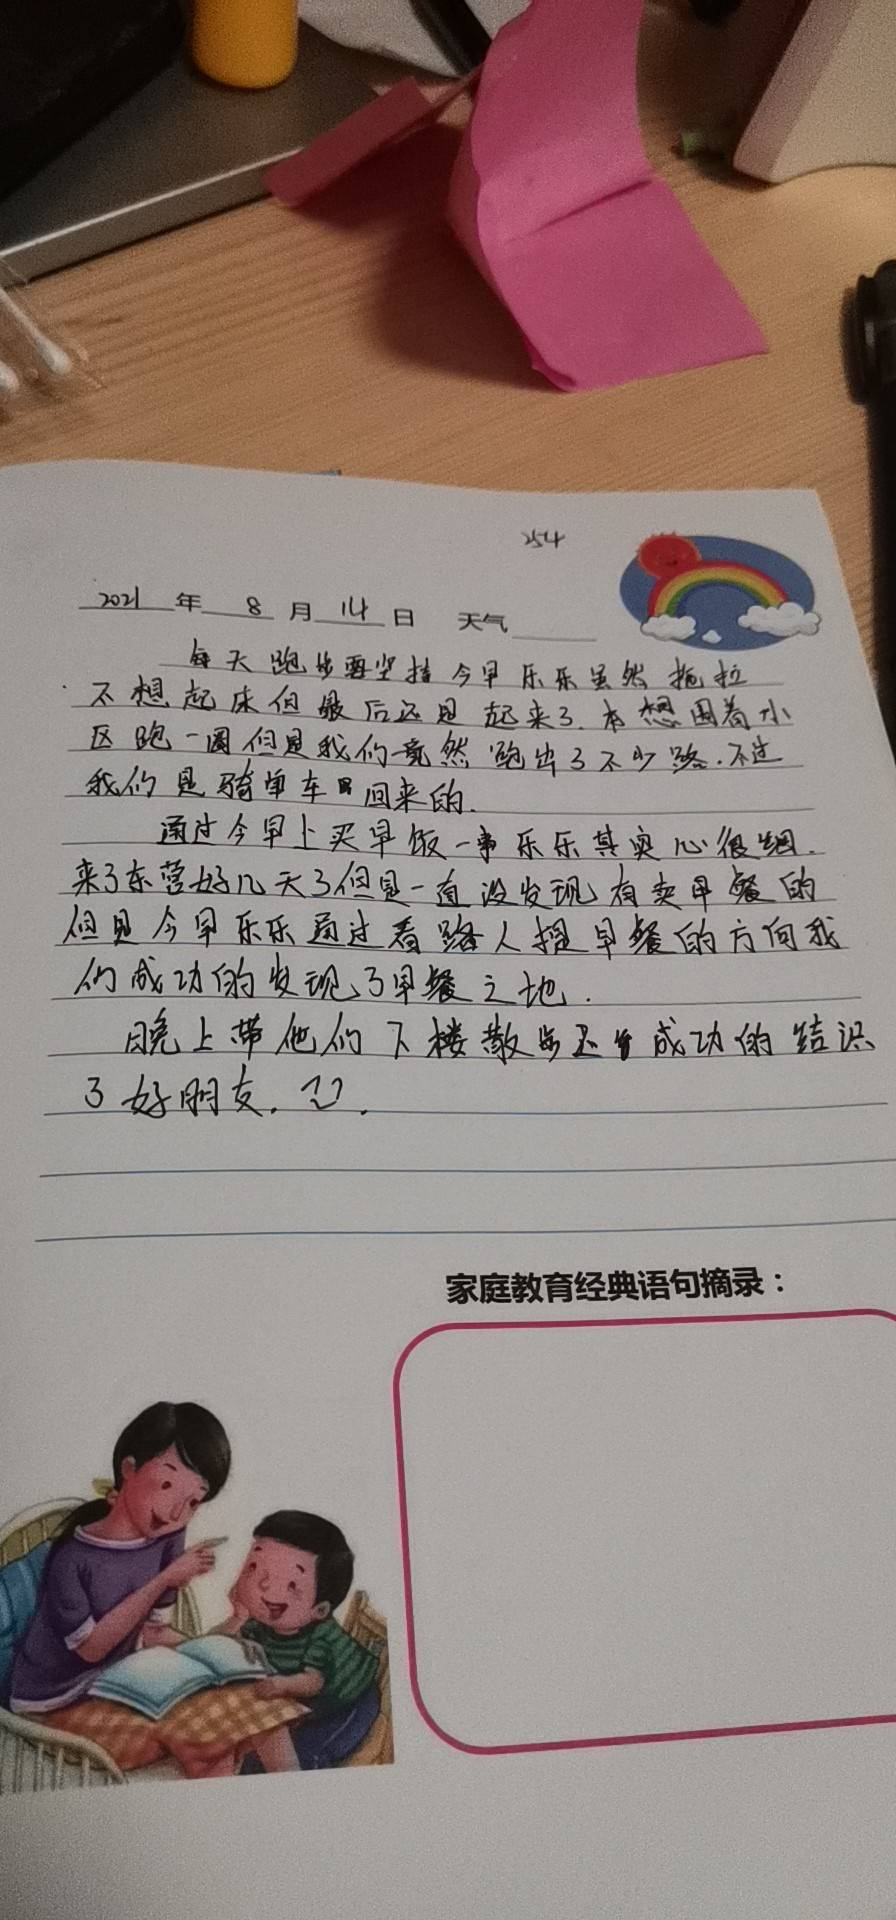 254
2021年8月14日 天气
每天跑步要坚持今早乐乐虽然拖拉
不想起床但最后还是起来了.本想围着小
区跑一圈但是我们竟然跑出了不少路.不过
我们是骑单车回来的.
通过今早上买早饭一事乐乐其实心很细.
来了东营好几天了但是一直没发现有卖早餐的
但是今早乐乐通过看路人提早餐的方向我
们成功的发现了早餐之地.
晚上带他们下楼散步还成功的结识
了好朋友.
家庭教育经典语句摘录：